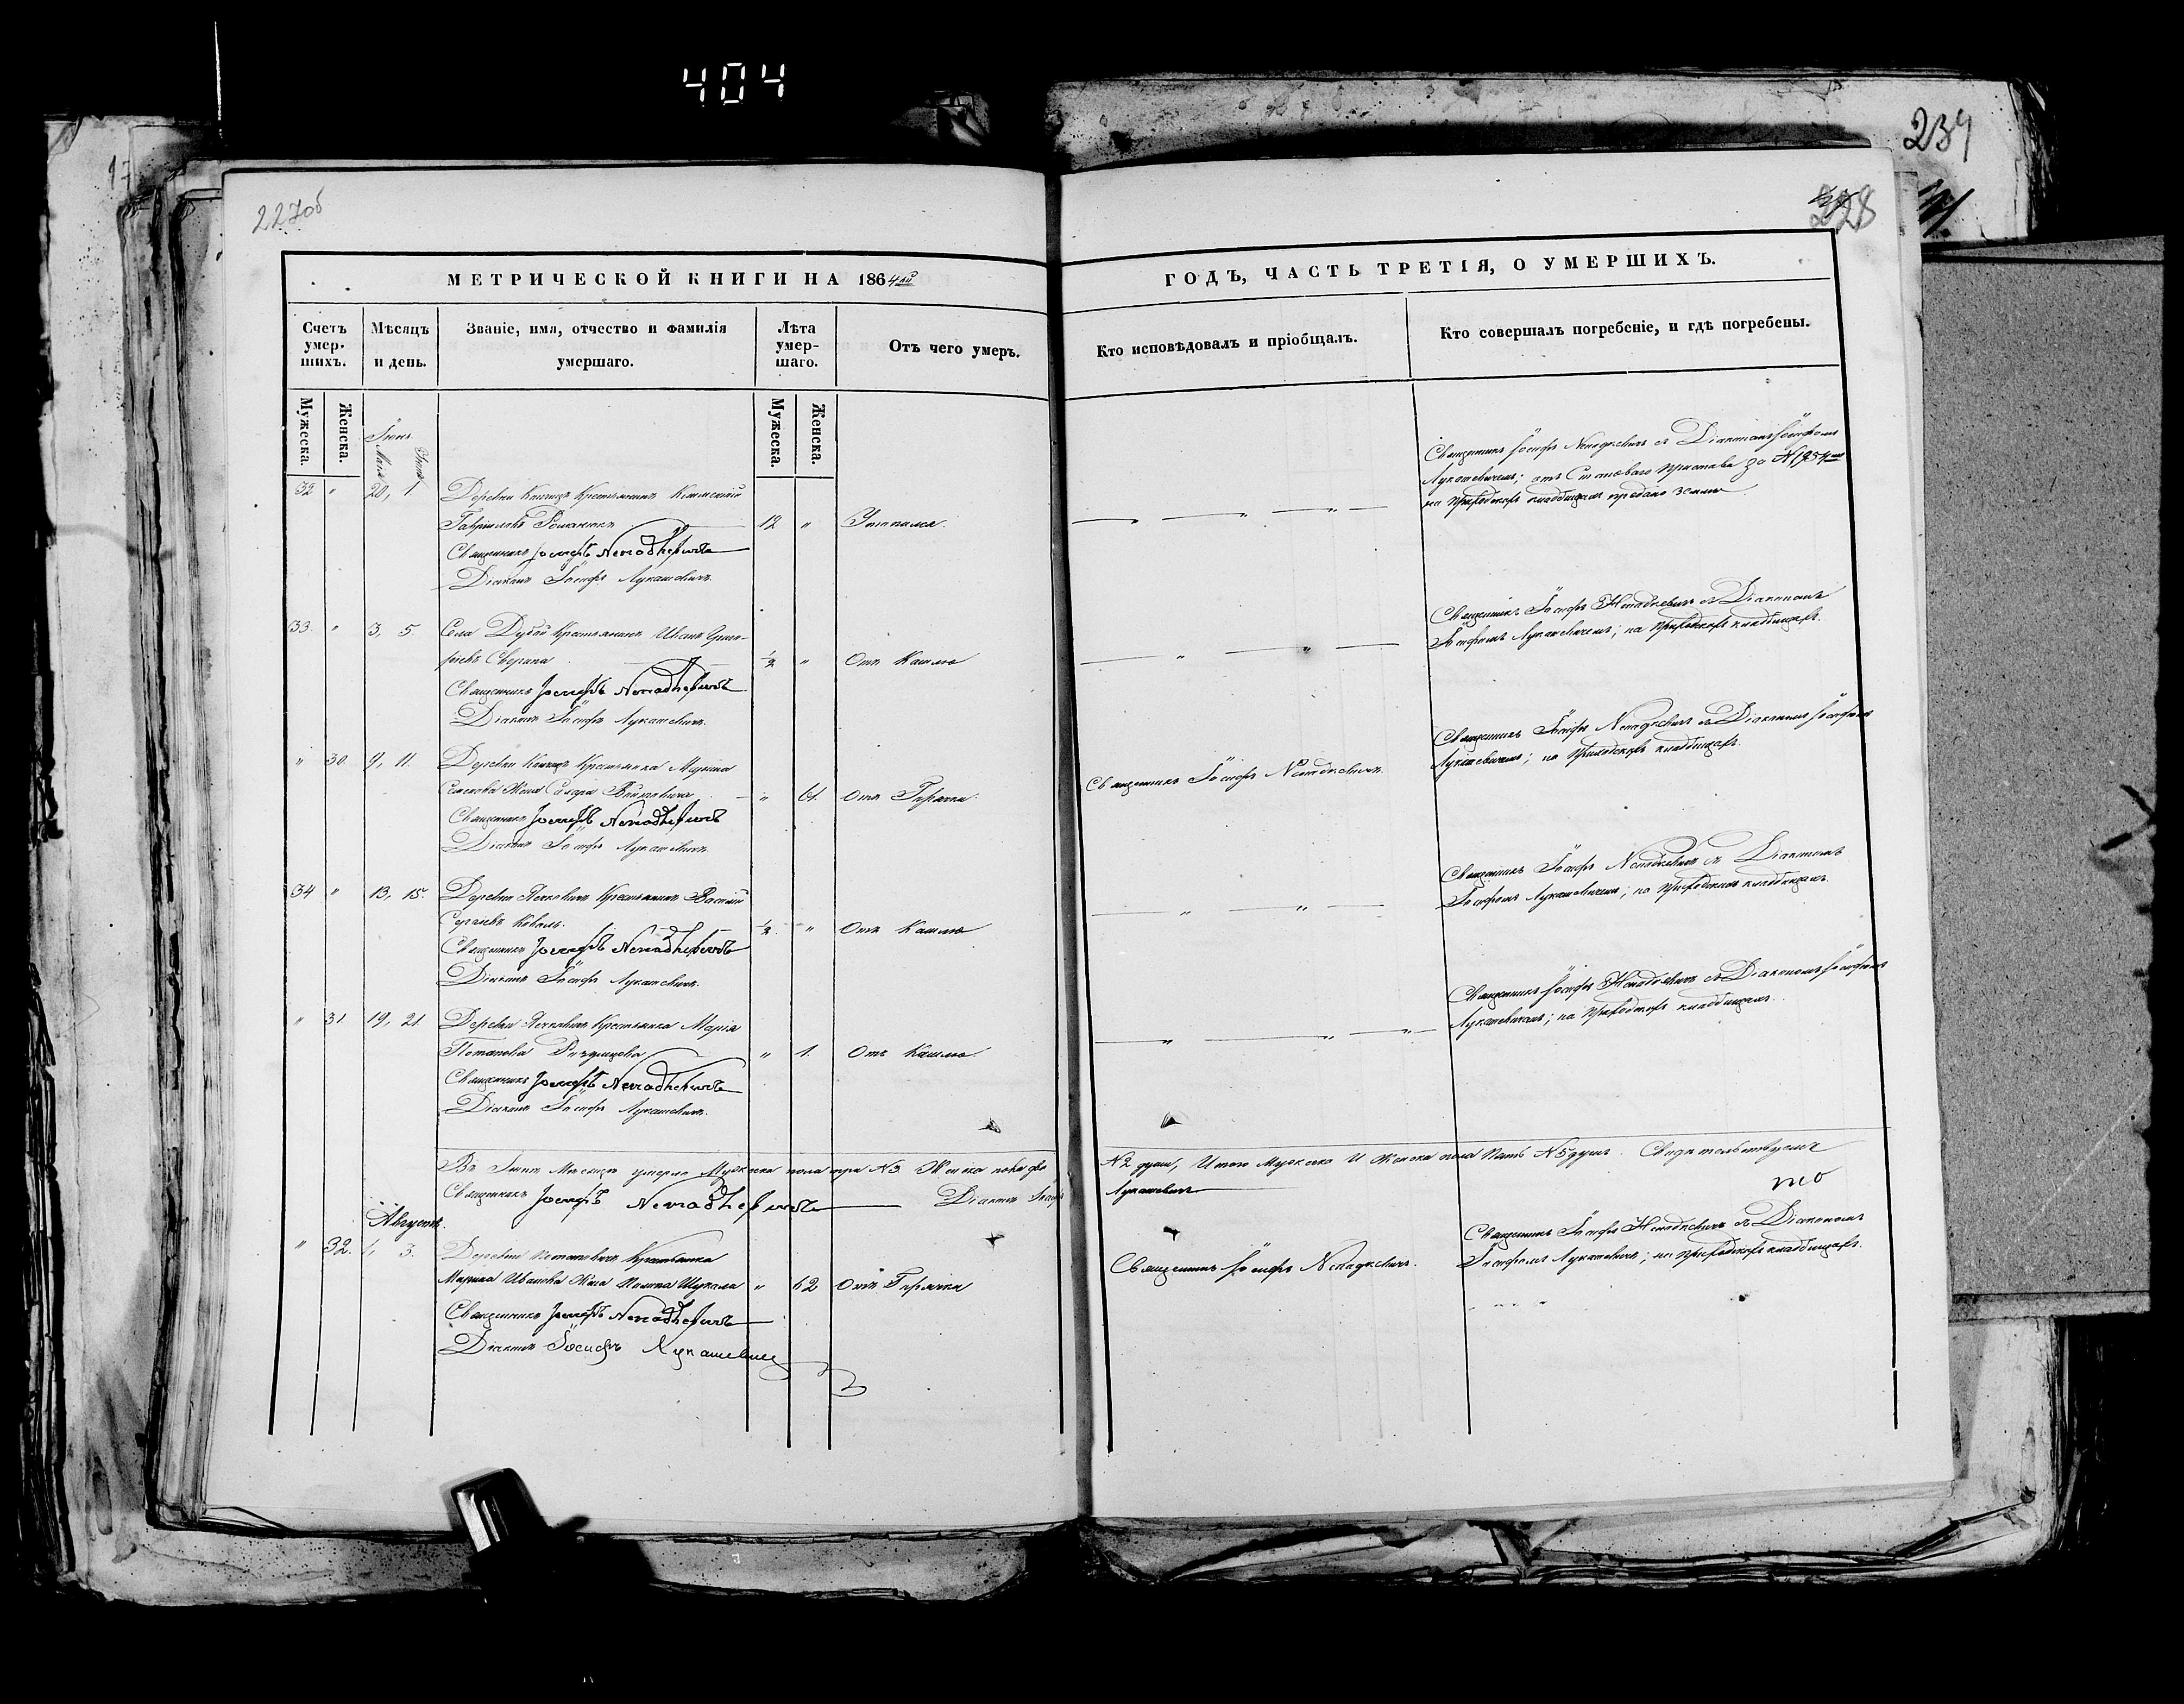 404
239
227об
228
МЕТРИЧЕСКОЙ КНИГИ НА 1864 ой
ГОДЪ, ЧАСТЬ ТРЕТІЯ, О УМЕРШИХЪ.
Счетъ умер-
шихъ.
Мѣсяцъ
и день.
Званіе, имя, отчество и фамилія
умершаго.
Лѣта
умер-
шаго.
Отъ чего умеръ.
Кто исповѣдовалъ и пріобщалъ.
Кто совершалъ погребеніе, и гдѣ погребены.
Мужеска.
Женска.
Мужеска.
Женска.
32 " 20, 1 Деревни Крестьянинъ
Гавріиловъ Романюкъ 12 " Утопился.
Священникъ Іосифъ Ненадкевичъ
Діаконъ Іосифъ Лукашевичъ.
Священникъ Іосифъ Ненадкевичъ съ Діакономъ Іосифомъ
Лукашевичемъ; отъ Становаго Пристава за №
на Приходскомъ кладбищѣ предано земли
33. " 3, 5 Села Дубой Крестьянинъ Иванъ Григо-
рьевъ 1/2 " Отъ Кашлю
Священникъ Іосифъ Ненадкевичъ
Діаконъ Іосифъ Лукашевичъ.
Священникъ Іосифъ Ненадкевичъ съ Діакономъ
Іосифомъ Лукашевичемъ; на Приходскомъ кладбищѣ.
" 30. 9, 11. Деревни Крестьянка
Жена " 61. Отъ Горячки
Священникъ Іосифъ Ненадкевичъ
Діаконъ Іосифъ Лукашевичъ.
Священникъ Іосифъ Ненадкевичъ.
Священникъ Іосифъ Ненадкевичъ съ Діакономъ Іосифомъ
Лукашевичемъ; на Приходскомъ кладбищѣ.
34 " 13, 15. Деревни Крестьянинъ Василій
Сергіевъ Коваль. 1/2. " Отъ Кашлю
Священникъ Іосифъ Ненадкевичъ
Діаконъ Іосифъ Лукашевичъ.
Священникъ Іосифъ Ненадкевичъ съ Діакономъ
Іосифомъ Лукашевичемъ; на Приходскомъ кладбищѣ.
" 31. 19, 21. Деревни Крестьянка Марія
Потапова " 1. Отъ Кашлю.
Священникъ Іосифъ Ненадкевичъ
Діаконъ Іосифъ Лукашевичъ.
Священникъ Іосифъ Ненадкевичъ съ Діакономъ Іосифомъ
Лукашевичемъ; на Приходскомъ кладбищѣ.
Въ Мѣсяцѣ умерло Мужеска пола три №3 Женска пола двѣ
№2 души, Итого Мужеска И Женска пола Пять №5 душъ. Свидѣтельствуемъ
Священникъ Іосифъ Ненадкевичъ Діаконъ Іосифъ
Лукашевичъ
Августъ.
" 32. 1, 3. Деревни Крестьянка
Марина Иванова Жена " 62 Отъ Горячки
Священникъ Іосифъ Ненадкевичъ
Діаконъ Іосифъ Лукашевичъ
Священникъ Іосифъ Ненадкевичъ.
Священникъ Іосифъ Ненадкевичъ съ Діакономъ
Іосифомъ Лукашевичемъ; на Приходскомъ кладбищѣ.